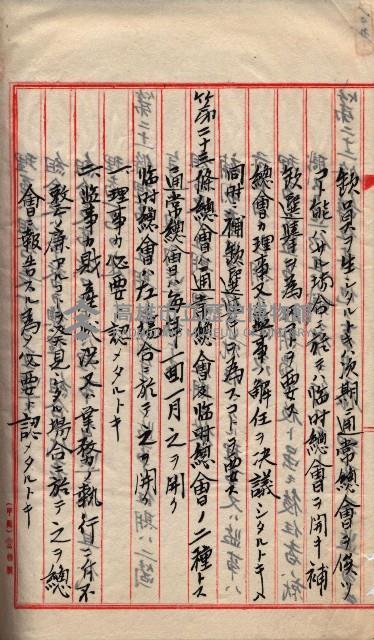 欽員ヲ生シタルトキハ次期ノ通常總會ヲ俟ツ
コト能ハサル場合ニ於テハ臨時總會ヲ開キ補
欽選擧ヲ為スヲ要ス
總會カ理事又ハ監事ノ解任ヲ決議シタルトキハ
同時ニ補欽選擧ヲ為スコトヲ要ス
第二十三條 總會ハ通常總會及臨時總會ノ二種トス
通常總會ハ毎年一回一月之ヲ開ク
臨時總會ハ左ノ場合ニ於テ之ヲ開ク
一、理事カ必要ト認メタルトキ
二、監事カ財産ノ狀況又ハ業務ノ執行ニ付不
整ノ廉アルコトヲ発見シタル場合ニ於テ之ヲ總
會ニ報告スル為メ必要ト認メタルトキ
高雄市立歷史博物館